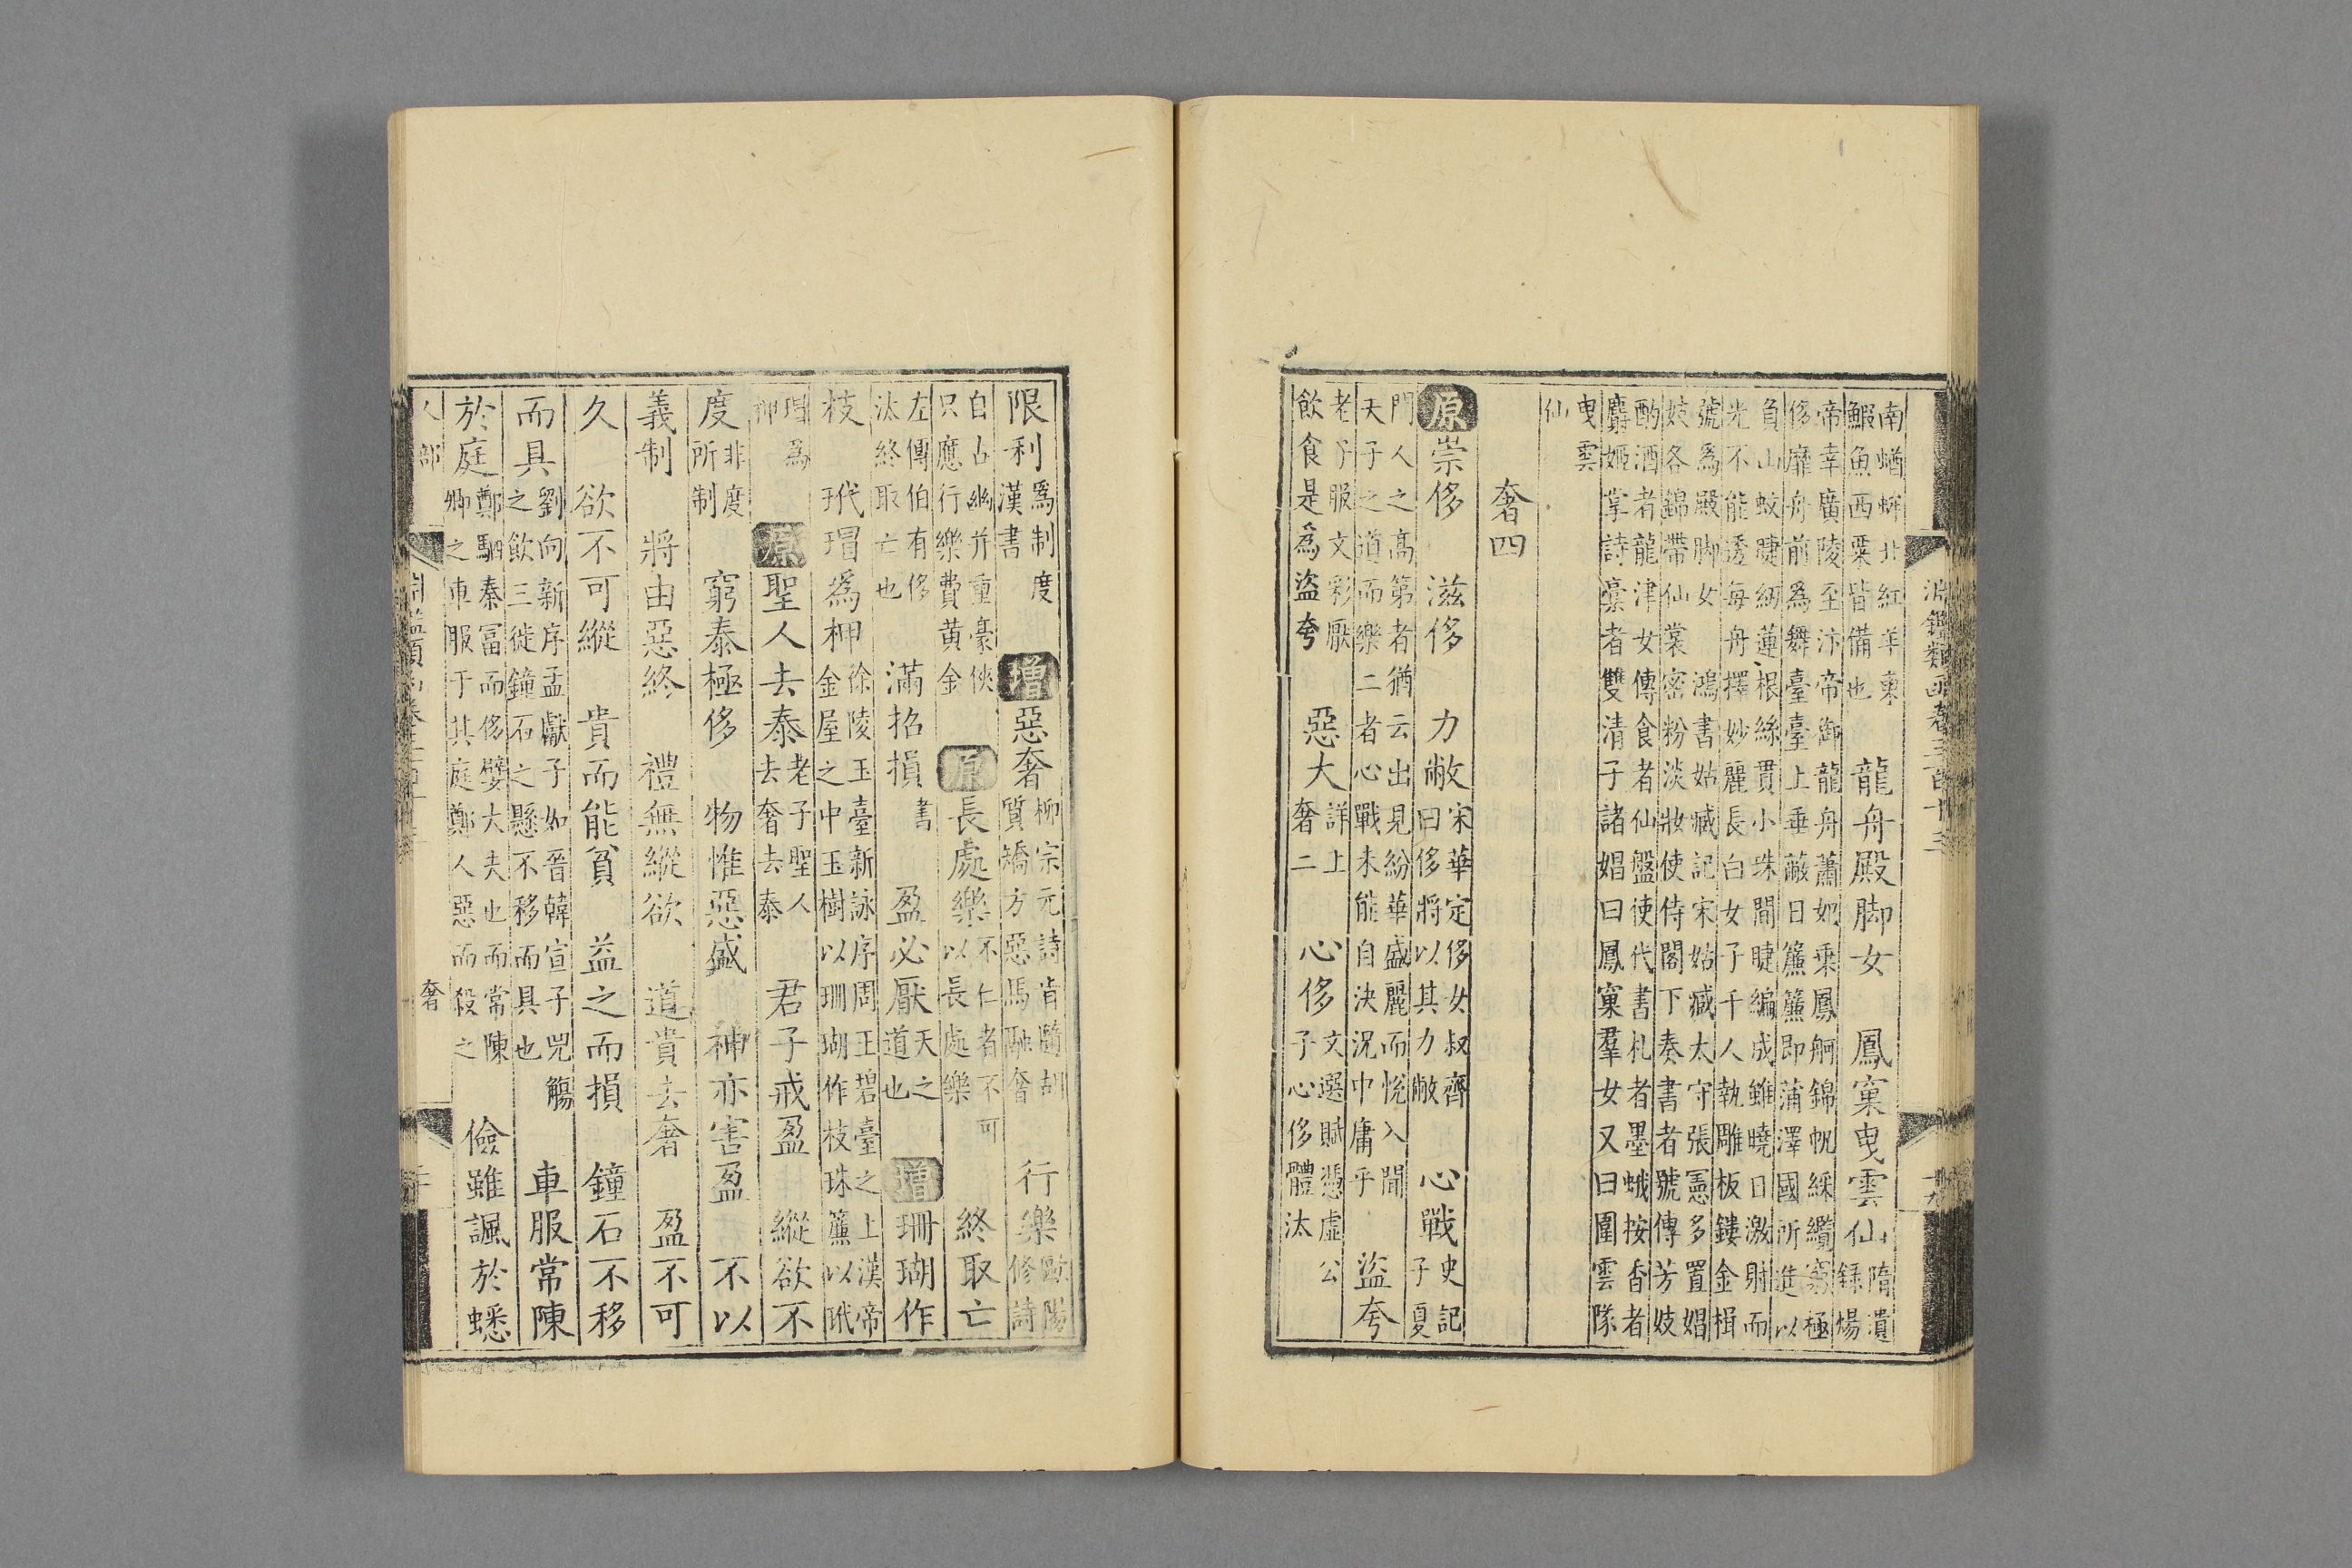 淵鑑類函卷三百十三
南蝤蛑北紅羊東
鰕魚西粟皆備也
龍舟殿脚女
鳳窠曳雲仙
隋遺
錄煬
帝幸廣陵至汴帝御龍舟蕭妃乘鳳舸錦帆綵纜窮極
侈靡舟前爲舞臺臺上垂蔽日簾簾即蒲澤國所進以
負山蛟睫紉蓮根絲貫小珠間睫編成雖曉日激射而
光不能透每舟擇妙麗長白女子千人執雕板鏤金楫
號爲殿脚女
鴻書姑臧記宋姑臧太守張憲多置娼
妓各錦帶仙裳密粉淡妝使侍閣下奏書者號傳芳妓
酌酒者龍津女傳食者仙盤使代書札者墨娥按香者
麝姬掌詩藁者雙清子諸娼曰鳳窠羣女又曰團雲隊
曳雲
仙
奢四
原崇侈
滋侈
力敝
宋華定侈女叔齊
曰侈將以其力敝
心戰
史記
子夏
門人之高第者猶云出見紛華盛麗而悅入聞
天子之道而樂二者心戰未能自決況中庸乎
盜夸
老子服文彩厭
飲食是爲盜夸
惡大
詳上
奢二
心侈
文選賦憑虛公
子心侈體汰
限利
爲制度
漢書
增惡奢
柳宗元詩肯隨胡
質矯方惡馬融奢
行樂
歐陽
修詩
自古幽并重豪俠
只應行樂費黃金
原長處樂
不仁者不可
以長處樂
終取亡
左傳伯有侈
汰終取亡也
滿招損
書
盈必厭
天之
道也
增珊瑚作
枝
玳瑁爲柙
徐陵玉臺新詠序周王碧臺之上漢帝
金屋之中玉樹以珊瑚作枝珠簾以玳
瑁爲
柙
原聖人去泰
老子聖人
去奢去泰
君子戒盈
縱欲不
度
非度
所制
窮泰極侈
物惟惡盛
神亦害盈
不以
義制
將由惡終
禮無縱欲
道貴去奢
盈不可
久
欲不可縱
貴而能貧
益之而損
鐘石不移
而具
劉向新序孟獻子如晉韓宣子兕觴
之飲三徙鐘石之懸不移而具也
車服常陳
於庭
鄭駟秦富而侈嬖大夫也而常陳
卿之車服于其庭鄭人惡而殺之
儉雖諷於蟋
人部
奢